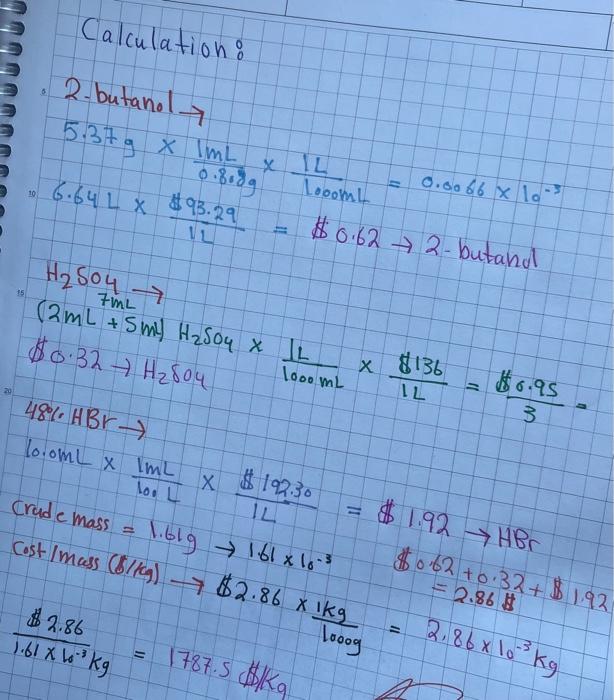 Calculation:
2-butanol →
5.37g × 1mL/0.808g × 1L/1000mL = 0.0066 × 10⁻³
6.64 L × $93.29/1L = $0.62 → 2-butanol
H₂SO₄ →
7mL
(2mL + 5mL) H₂SO₄ × 1L/1000 mL × $136/1L = $0.95/3 =
$0.32 → H₂SO₄
48% HBr →
10.0mL × 1mL/100 L × $192.30/1L = $1.92 → HBr
Crude mass = 1.61g → 1.61 × 10⁻³
$0.62 + 0.32 + $1.92
= 2.86 $
Cost/mass ($/kg) → $2.86 × 1kg/1000g = 2.86 × 10⁻³ kg
$2.86/1.61 × 10⁻³ kg = 1787.5 $/kg